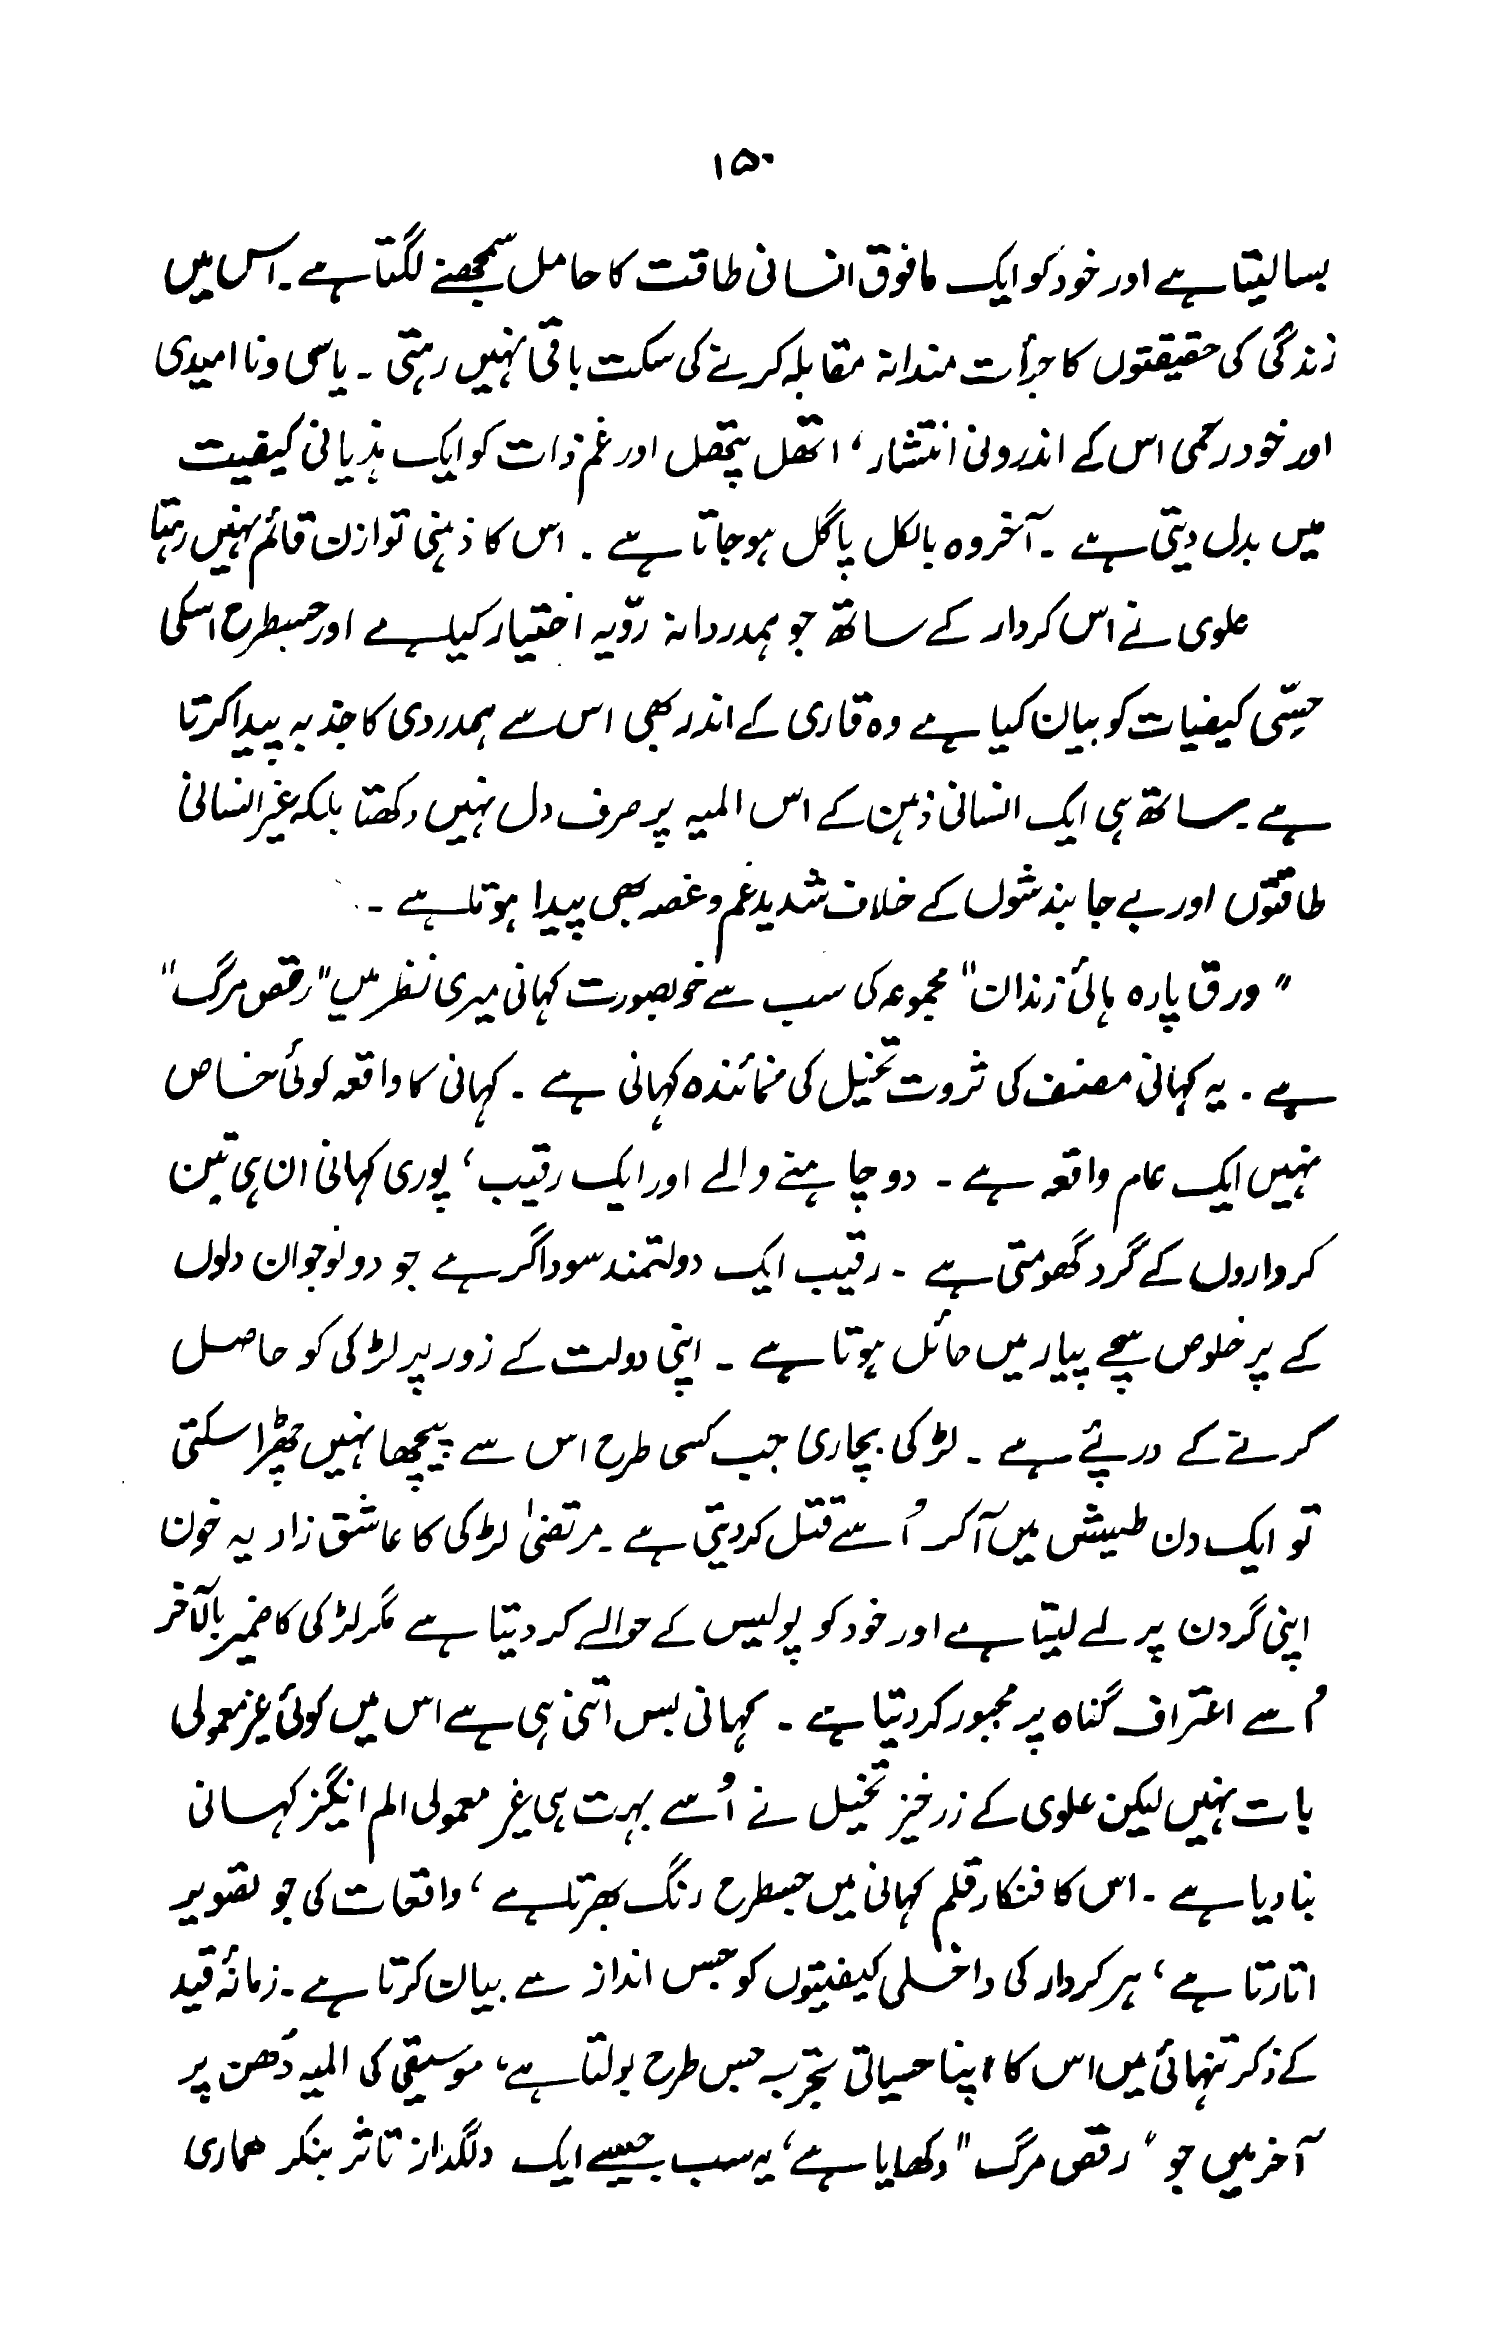 ۱۵۰
بسا لیتا ہے اور خود کو ایک مافوق انسانی طاقت کا حامل سمجھنے لگتا ہے۔ اس میں
زندگی کی حقیقتوں کا جرأت مندانہ مقابلہ کرنے کی سکت باقی نہیں رہتی ۔ یاسی و نا امیدی
اور خود رحمی اس کے اندرونی انتشار، اتھل پتھل اور غم ذات کو ایک ہذیانی کیفیت
میں بدل دیتی ہے ۔ آخر وہ بالکل پاگل ہو جاتا ہے ۔ اس کا ذہنی توازن قائم نہیں رہتا
علوی نے اس کردار کے ساتھ جو ہمدردانہ روّیہ اختیار کیا ہے اور جسطرح اسکی
حسّی کیفیات کو بیان کیا ہے وہ قاری کے اندر بھی اس سے ہمدردی کا جذبہ پیدا کرتا
ہے ۔ ساتھ ہی ایک انسانی ذہن کے اس المیہ پر صرف دل نہیں دکھتا بلکہ غیر انسانی
طاقتوں اور بے جا بندشوں کے خلاف شدید غم و غصہ بھی پیدا ہوتا ہے ۔
" ورق پارہ ہائی زندان" مجموعہ کی سب سے خوبصورت کہانی میری نظر میں "رقص مرگ"
ہے ۔ یہ کہانی مصنف کی ثروت تخیل کی نمائندہ کہانی ہے ۔ کہانی کا واقعہ کوئی خاص
نہیں ایک عام واقعہ ہے ۔ دو چاہنے والے اور ایک رقیب، پوری کہانی ان ہی تین
کرداروں کے گرد گھومتی ہے ۔ رقیب ایک دولتمند سوداگر ہے جو دو نوجوان دلوں
کے پر خلوص سچے پیار میں حائل ہوتا ہے ۔ اپنی دولت کے زور پر لڑکی کو حاصل
کرنے کے درپئے ہے ۔ لڑکی بچاری جب کسی طرح اس سے پیچھا نہیں چھڑا سکتی
تو ایک دن طیش میں آکر اُسے قتل کر دیتی ہے ۔ مرتضیٰ لڑکی کا عاشق زار یہ خون
اپنی گردن پر لے لیتا ہے اور خود کو پولیس کے حوالے کر دیتا ہے مگر لڑکی کا ضمیر بالآخر
اُسے اعتراف گناہ پر مجبور کر دیتا ہے ۔ کہانی بس اتنی ہی ہے اس میں کوئی غیر معمولی
بات نہیں لیکن علوی کے زرخیز تخیل نے اُسے بہت ہی غیر معمولی الم انگیز کہانی
بنا دیا ہے ۔ اس کا فنکار قلم کہانی میں جسطرح رنگ بھرتا ہے، واقعات کی جو تصویر
اتارتا ہے، ہر کردار کی داخلی کیفیتوں کو جس انداز سے بیان کرتا ہے ۔ زمانۂ قید
کے ذکر تنہائی میں اس کا اپنا حسیاتی تجربہ جس طرح بولتا ہے، موسیقی کی المیہ دُھن پر
آخر میں جو "رقص مرگ" دکھایا ہے، یہ سب جیسے ایک دلگداز تاثر بنکر ہماری